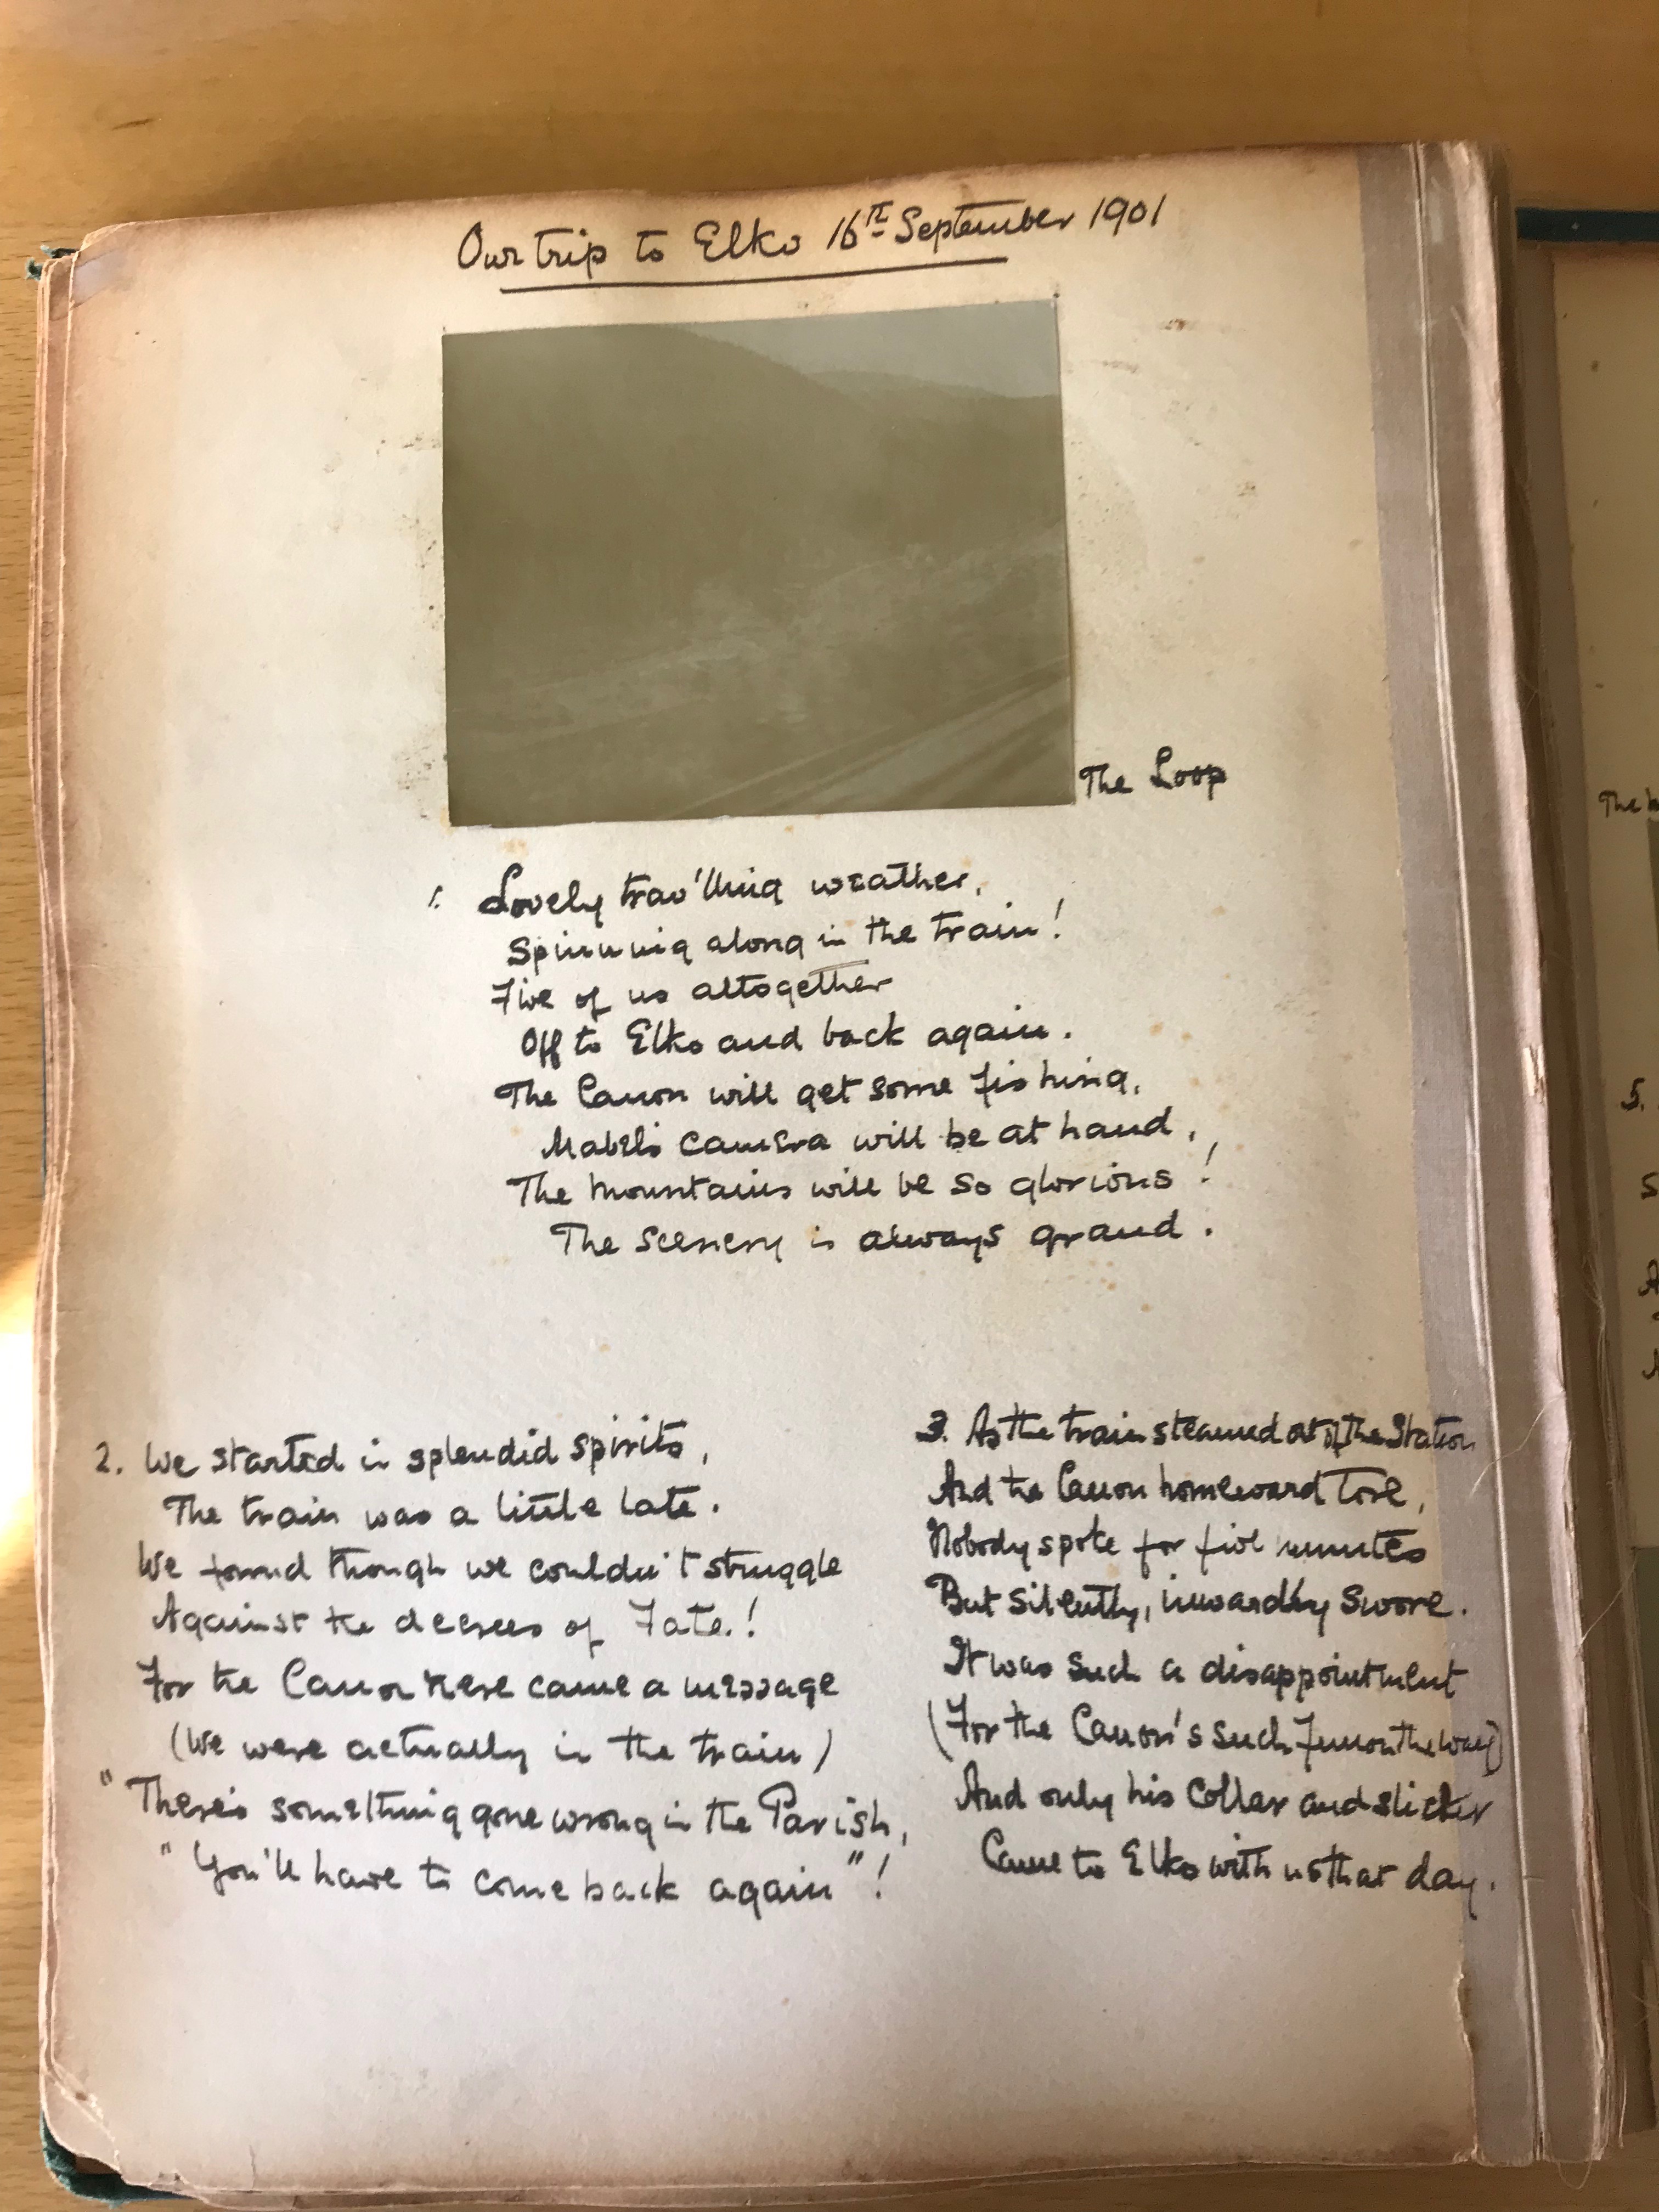 Our trip to Elko 16th September 1901
The Loop
1. Lovely trav'lling weather,
Spinning along in the train!
Five of us altogether
Off to Elko and back again.
The Canon will get some fishing,
Mabel's camera will be at hand,
The mountains will be so glorious!
The scenery is always grand.
2. We started in splendid spirits,
The train was a little late.
We found though we couldn't struggle
Against the decrees of Fate!
For the Canon there came a message
(We were actually in the train)
"There's something gone wrong in the Parish,
"You'll have to come back again"!
3. As the train steamed out of the Station
And the Canon homeward tore,
Nobody spoke for five minutes
But silently, inwardly swore.
It was such a disappointment
(For the Canon's such fun on the way)
And only his collar and slicker
Came to Elko with us that day.
The
5.
S